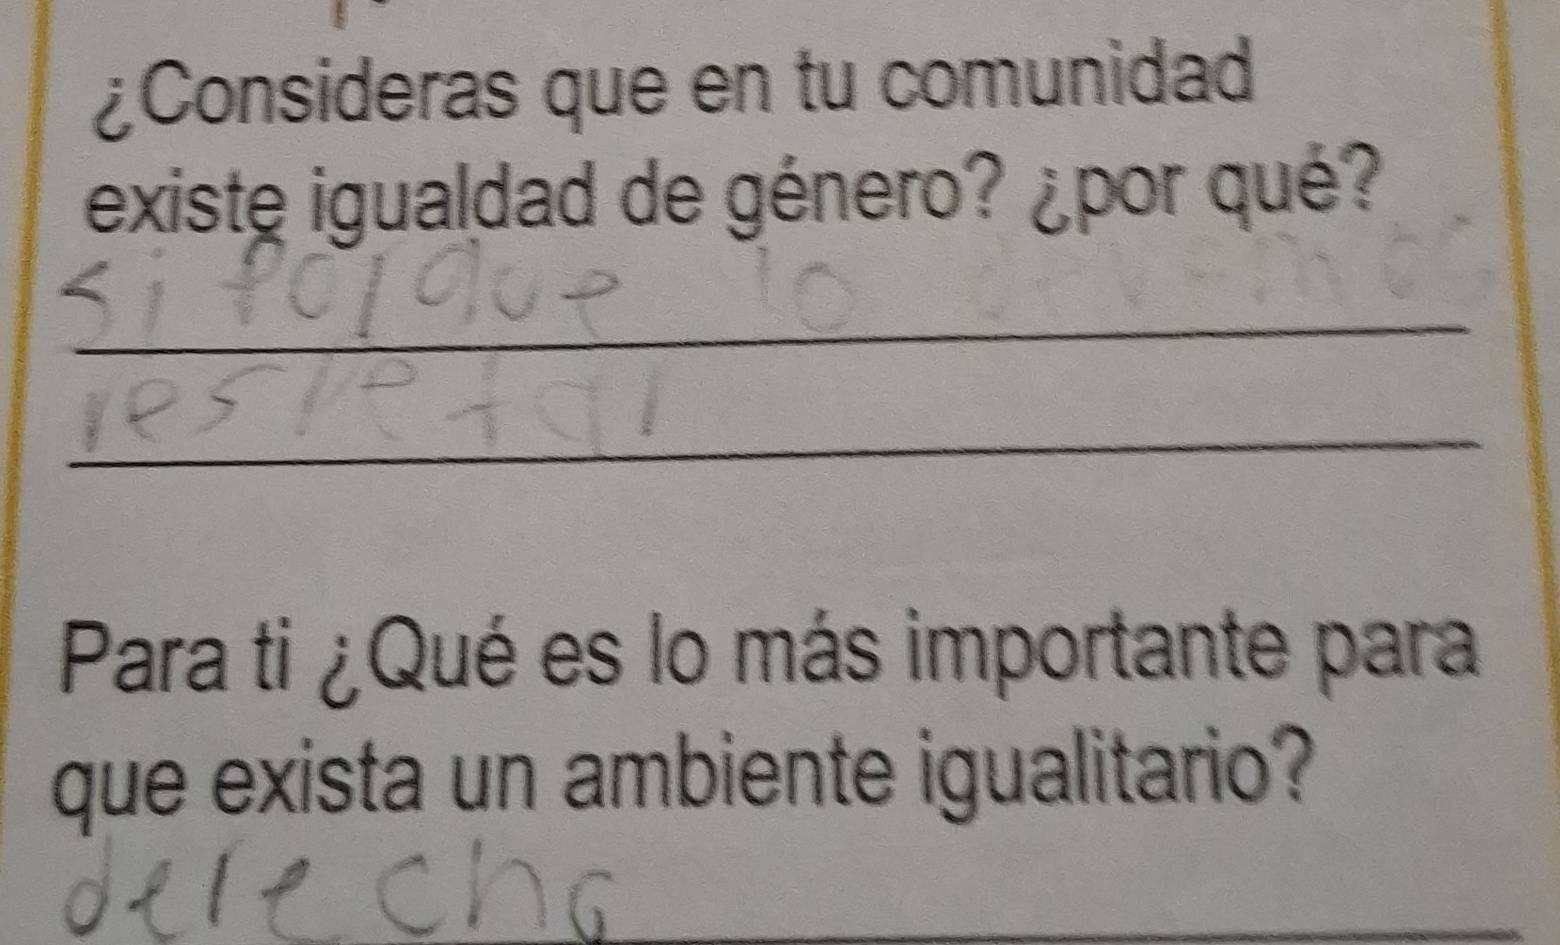 ¿Consideras que en tu comunidad
existe igualdad de género? ¿por qué?
si porque lo devemos
respetar
Para ti ¿Qué es lo más importante para
que exista un ambiente igualitario?
derecha